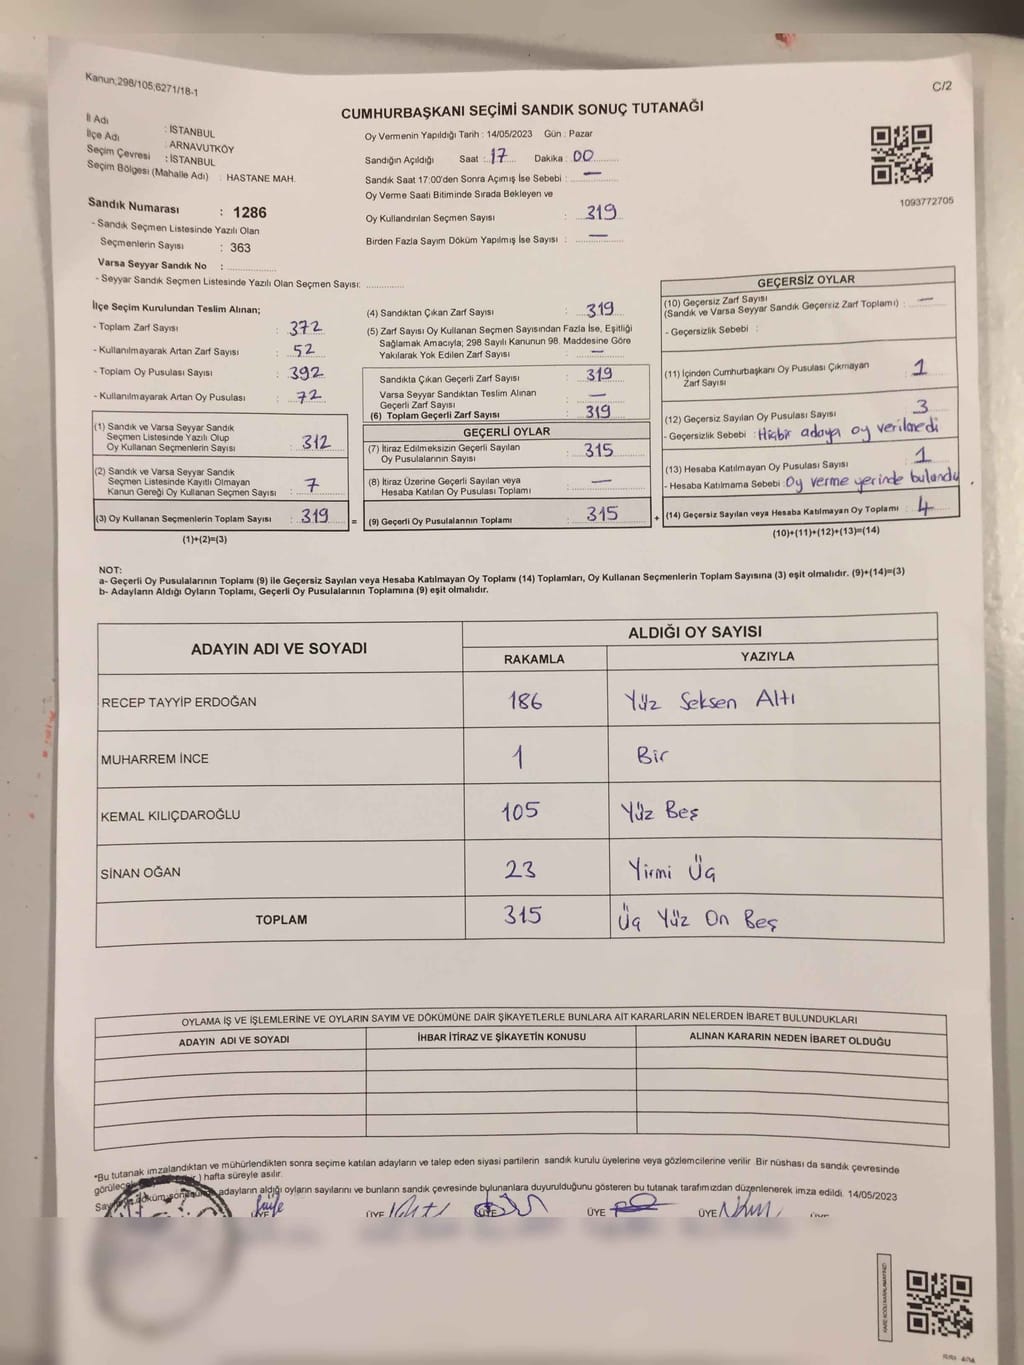 Kanun;298/105;6271/18-1
C/2
CUMHURBAŞKANI SEÇİMİ SANDIK SONUÇ TUTANAĞI
İl Adı : İSTANBUL
İlçe Adı : ARNAVUTKÖY
Seçim Çevresi : İSTANBUL
Seçim Bölgesi (Mahalle Adı) : HASTANE MAH.
Oy Vermenin Yapıldığı Tarih : 14/05/2023 Gün : Pazar
Sandığın Açıldığı Saat : 17 Dakika : 00
Sandık Saat 17:00'den Sonra Açımış İse Sebebi : —
Oy Verme Saati Bitiminde Sırada Bekleyen ve
Oy Kullandırılan Seçmen Sayısı : 319
Birden Fazla Sayım Döküm Yapılmış İse Sayısı : —
1093772705
Sandık Numarası : 1286
- Sandık Seçmen Listesinde Yazılı Olan
Seçmenlerin Sayısı : 363
Varsa Seyyar Sandık No :
- Seyyar Sandık Seçmen Listesinde Yazılı Olan Seçmen Sayısı:
İlçe Seçim Kurulundan Teslim Alınan;
- Toplam Zarf Sayısı : 372
- Kullanılmayarak Artan Zarf Sayısı : 52
- Toplam Oy Pusulası Sayısı : 392
- Kullanılmayarak Artan Oy Pusulası : 72
(1) Sandık ve Varsa Seyyar Sandık
Seçmen Listesinde Yazılı Olup
Oy Kullanan Seçmenlerin Sayısı : 312
(2) Sandık ve Varsa Seyyar Sandık
Seçmen Listesinde Kayıtlı Olmayan
Kanun Gereği Oy Kullanan Seçmen Sayısı : 7
(3) Oy Kullanan Seçmenlerin Toplam Sayısı : 319
(1)+(2)=(3)
(4) Sandıktan Çıkan Zarf Sayısı : 319
(5) Zarf Sayısı Oy Kullanan Seçmen Sayısından Fazla İse, Eşitliği
Sağlamak Amacıyla; 298 Sayılı Kanunun 98. Maddesine Göre
Yakılarak Yok Edilen Zarf Sayısı : —
Sandıkta Çıkan Geçerli Zarf Sayısı : 319
Varsa Seyyar Sandıktan Teslim Alınan
Geçerli Zarf Sayısı : —
(6) Toplam Geçerli Zarf Sayısı : 319
GEÇERLİ OYLAR
(7) İtiraz Edilmeksizin Geçerli Sayılan
Oy Pusulalarının Sayısı : 315
(8) İtiraz Üzerine Geçerli Sayılan veya
Hesaba Katılan Oy Pusulası Toplamı : —
= (9) Geçerli Oy Pusulalarının Toplamı : 315
GEÇERSİZ OYLAR
(10) Geçersiz Zarf Sayısı
(Sandık ve Varsa Seyyar Sandık Geçersiz Zarf Toplamı) : —
- Geçersizlik Sebebi :
(11) İçinden Cumhurbaşkanı Oy Pusulası Çıkmayan
Zarf Sayısı : 1
(12) Geçersiz Sayılan Oy Pusulası Sayısı : 3
- Geçersizlik Sebebi : Hiçbir adaya oy verilmedi
(13) Hesaba Katılmayan Oy Pusulası Sayısı : 1
- Hesaba Katılmama Sebebi : Oy verme yerinde bulundu
+ (14) Geçersiz Sayılan veya Hesaba Katılmayan Oy Toplamı : 4
(10)+(11)+(12)+(13)=(14)
NOT:
a- Geçerli Oy Pusulalarının Toplamı (9) ile Geçersiz Sayılan veya Hesaba Katılmayan Oy Toplamı (14) Toplamları, Oy Kullanan Seçmenlerin Toplam Sayısına (3) eşit olmalıdır. (9)+(14)=(3)
b- Adayların Aldığı Oyların Toplamı, Geçerli Oy Pusulalarının Toplamına (9) eşit olmalıdır.
ADAYIN ADI VE SOYADI ALDIĞI OY SAYISI
RAKAMLA YAZIYLA
RECEP TAYYİP ERDOĞAN 186 Yüz Seksen Altı
MUHARREM İNCE 1 Bir
KEMAL KILIÇDAROĞLU 105 Yüz Beş
SİNAN OĞAN 23 Yirmi Üç
TOPLAM 315 Üç Yüz On Beş
OYLAMA İŞ VE İŞLEMLERİNE VE OYLARIN SAYIM VE DÖKÜMÜNE DAİR ŞİKAYETLERLE BUNLARA AİT KARARLARIN NELERDEN İBARET BULUNDUKLARI
ADAYIN ADI VE SOYADI İHBAR İTİRAZ VE ŞİKAYETİN KONUSU ALINAN KARARIN NEDEN İBARET OLDUĞU
*Bu tutanak imzalandıktan ve mühürlendikten sonra seçime katılan adayların ve talep eden siyasi partilerin sandık kurulu üyelerine veya gözlemcilerine verilir. Bir nüshası da sandık çevresinde
) hafta süreyle asılır.
adayların aldığı oyların sayılarını ve bunların sandık çevresinde bulunanlara duyurulduğunu gösteren bu tutanak tarafımızdan düzenlenerek imza edildi. 14/05/2023
ÜYE ÜYE ÜYE ÜYE ÜYE